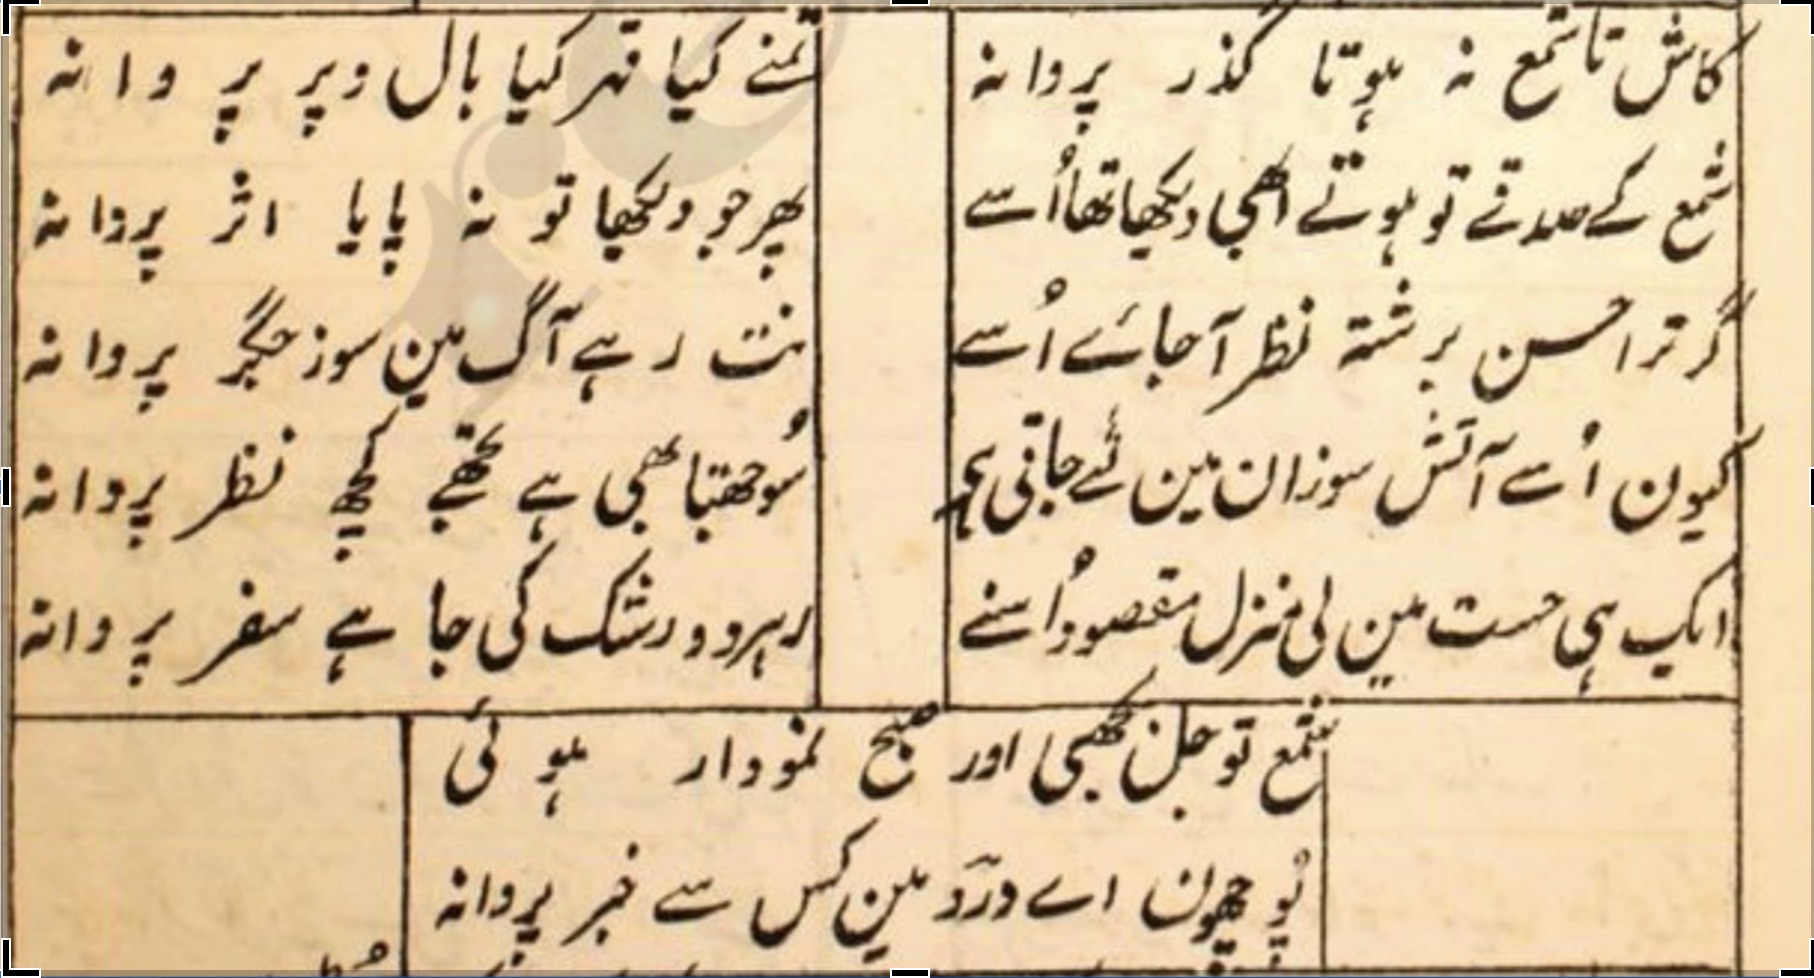 کاش تا شمع نہ ہوتا گذر پروانہ
تمنے کیا قہر کیا بال وپر پروانہ
شمع کے صدقے تو ہوتے ابھی دیکھا تھا اُسے
پھر جو دیکھا تو نہ پایا اثر پروانہ
گر ترا حسن برشتہ نظر آجائے اُسے
نت رہے آگ مین سوز جگر پروانہ
کیون اُسے آتش سوزان مین لئے جاتی ہی
سُوجھتا بھی ہے تجھے کچھ نظر پروانہ
ایک ہی جست مین لی منزل مقصود اُسنے
رہرو و رشک کی جا ہے سفر پروانہ
شمع تو جل بجھی اور صبح نمودار ہوئی
پوچھون اے درد مین کس سے خبر پروانہ